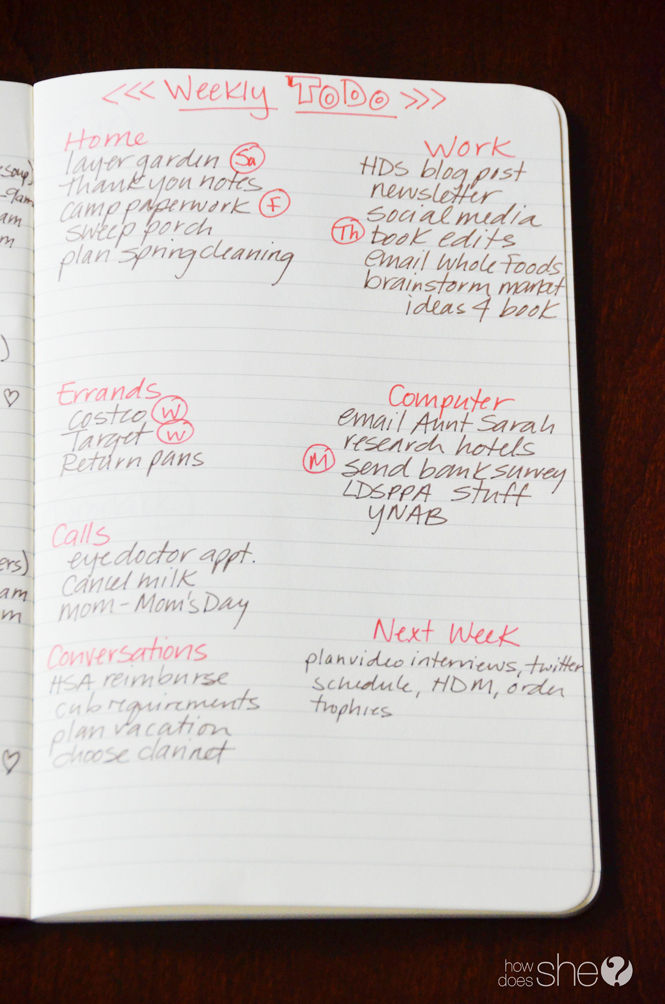 <<< Weekly ToDo >>>
Home
layer garden Sa
thank you notes
camp paperwork F
sweep porch
plan spring cleaning
Work
HDS blog post
newsletter
social media
Th book edits
email Whole Foods
brainstorm market
ideas 4 book
Errands
Costco W
Target W
Return pans
Computer
email Aunt Sarah
research hotels
M send bank survey
LDSPPA stuff
YNAB
Calls
eye doctor appt.
cancel milk
mom - Mom's Day
Conversations
HSA reimburse
cub requirements
plan vacation
choose clarinet
Next Week
plan video interviews, twitter
schedule, HDM, order
trophies
soup)
am
m
)
ers)
am
m
how does she?